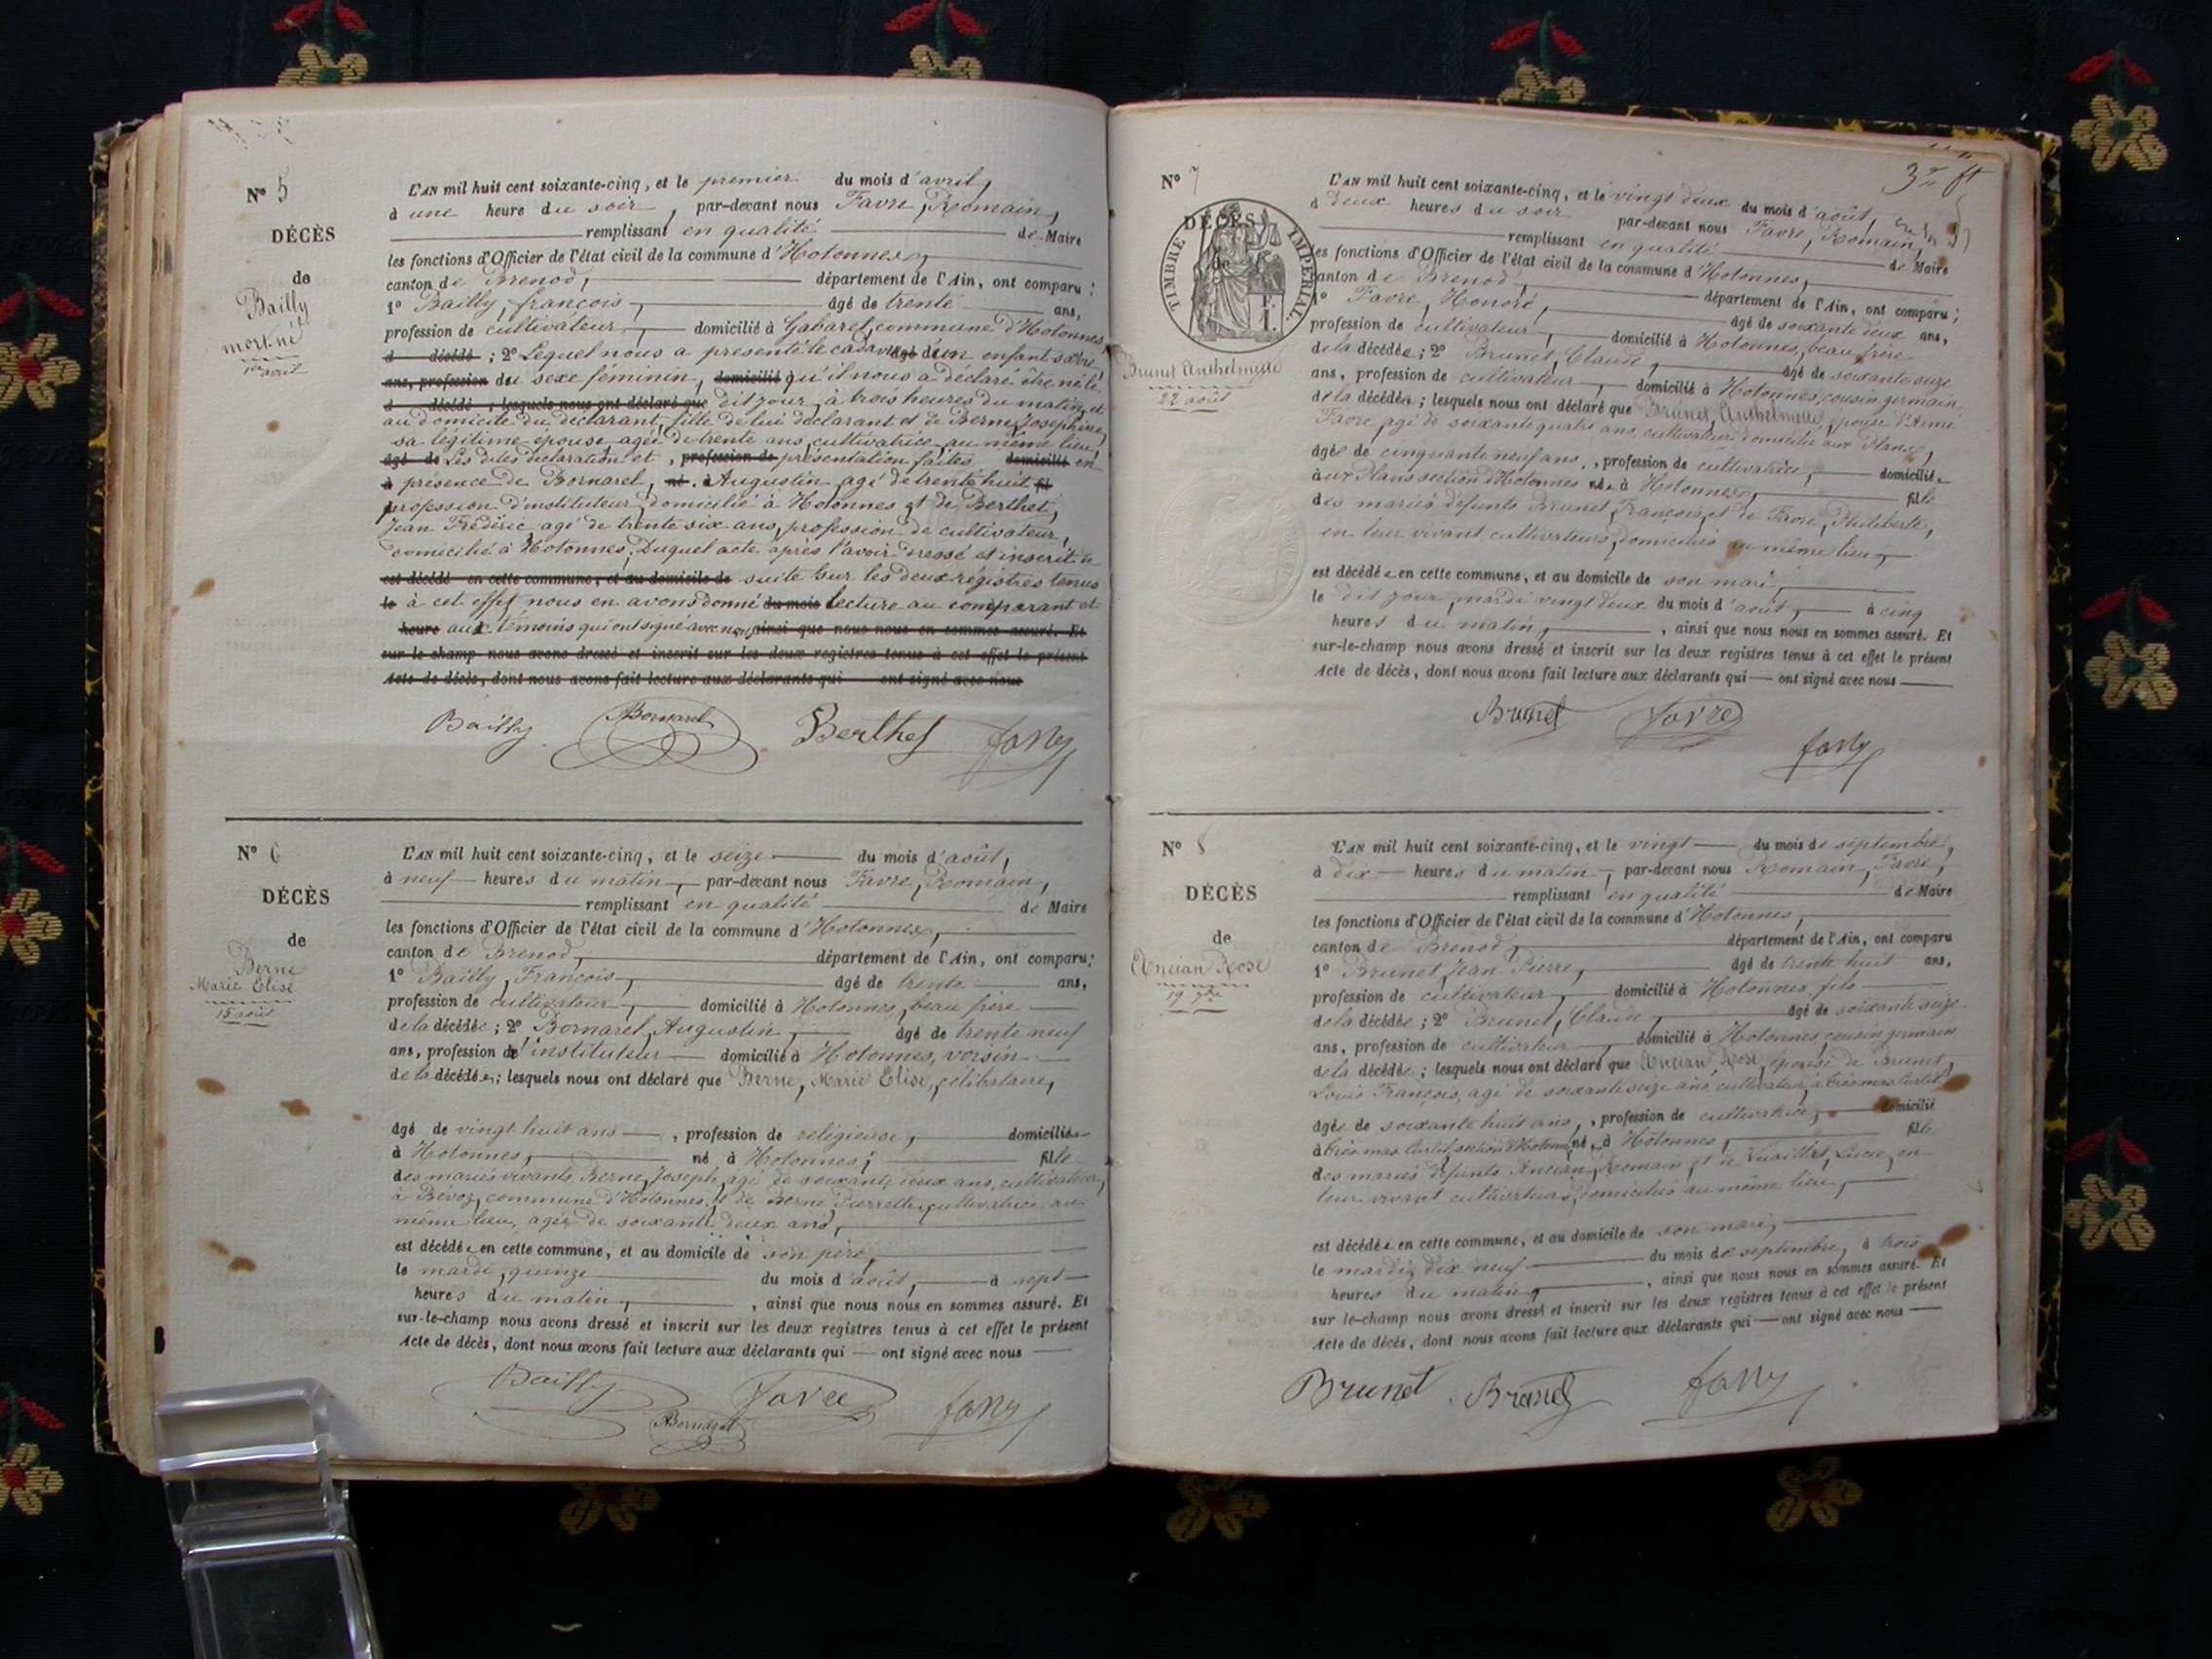 N° 5
DÉCÈS
de
Bailly
mort-né
1er avril
L'AN mil huit cent soixante-cinq, et le premier du mois d'avril,
à une heure du soir, par-devant nous Favre, Romain,
remplissant en qualité de Maire
les fonctions d'Officier de l'état civil de la commune d'Hotonnes,
canton de Brenod, département de l'Ain, ont comparu :
1° Bailly, françois, âgé de trente ans,
profession de cultivateur, domicilié à Gabaret, commune d'Hotonnes,
d décédé ; 2° Lequel nous a présenté le cadavre âgé d'un enfant
ans, profession du sexe féminin, domicilié qu'il nous a déclaré être né le
d décédé ; lesquels nous ont déclaré que dit jour, à trois heures du matin, et
au domicile du déclarant, fille de lui déclarant et de Berne, Josephine,
sa légitime épouse, agée de trente ans, cultivatrice au même lieu,
âgé de Les dites déclaration et, profession de présentation faites domicilié en
à présence de Bornarel, né à Augustin, agé de trente huit fil
profession d'instituteur, domicilié à Hotonnes et de Berthet,
Jean Frédéric agé de trente six ans, profession de cultivateur,
domicilié à Hotonnes, Duquel acte après l'avoir dressé et inscrit de
est décédé en cette commune, et au domicile de suite sur les deux régistres tenus
le à cet effet nous en avons donné du mois lecture au comparant et
heure aux témoins qui ont signé avec nous ainsi que nous nous en sommes assuré. Et
sur-le-champ nous avons dressé et inscrit sur les deux registres tenus à cet effet le présent
Acte de décès, dont nous avons fait lecture aux déclarants qui ont signé avec nous
Bailly Bornarel Berthet favre
N° 6
DÉCÈS
de
Berne
Marie Elise
15 août
L'AN mil huit cent soixante-cinq, et le seize du mois d'août,
à neuf heures du matin, par-devant nous Favre, Romain,
remplissant en qualité de Maire
les fonctions d'Officier de l'état civil de la commune d'Hotonnes,
canton de Brenod, département de l'Ain, ont comparu :
1° Bailly, François, âgé de trente ans,
profession de cultivateur, domicilié à Hotonnes, beau frère
de la décédée ; 2° Bornarel, Augustin, âgé de trente neuf
ans, profession d'instituteur domicilié à Hotonnes, voisin
de la décédée ; lesquels nous ont déclaré que Berne, Marie Elise, célibataire,
âgé de vingt huit ans, profession de religieuse, domiciliée
à Hotonnes, né à Hotonnes ; fille
des mariés vivants Berne, Joseph, agé de soixante deux ans, cultivateur,
à Bévoz, commune d'Hotonnes, et de Berne, Pierrette, cultivatrice au
même lieu, agée de soixante deux ans,
est décédée en cette commune, et au domicile de son père,
le mardi, quinze du mois d'août, à sept
heures du matin, ainsi que nous nous en sommes assuré. Et
sur-le-champ nous avons dressé et inscrit sur les deux registres tenus à cet effet le présent
Acte de décès, dont nous avons fait lecture aux déclarants qui ont signé avec nous
Bailly Favre favre
Bornarel
3me ft
N° 7
DÉCÈS
de
TIMBRE IMPÉRIAL.
Brunet Anthelmette
22 août
L'AN mil huit cent soixante-cinq, et le vingt deux du mois d'août,
à deux heures du soir par-devant nous Favre, Romain,
remplissant en qualité de Maire
les fonctions d'Officier de l'état civil de la commune d'Hotonnes,
canton de Brenod, département de l'Ain, ont comparu ;
1° Favre, Honoré, âgé de soixante deux ans,
profession de cultivateur, domicilié à Hotonnes, beau frère
de la décédée ; 2° Brunet, Claude, âgé de soixante seize
ans, profession de cultivateur, domicilié à Hotonnes, cousin germain
de la décédée ; lesquels nous ont déclaré que Brunet, Anthelmette, épouse d'Aimé
Favre, agé de soixante quatre ans, cultivateur domicilié aux Plans,
âgée de cinquante neuf ans, profession de cultivatrice, domiciliée
aux Plans section d'Hotonnes née à Hotonnes, fille
des mariés défunts Brunet, François, et de Favre, Philiberte,
en leur vivant cultivateurs, domiciliés au même lieu,
est décédée en cette commune, et au domicile de son mari,
le dit jour, mardi vingt deux du mois d'août, à cinq
heures du matin, ainsi que nous nous en sommes assuré. Et
sur-le-champ nous avons dressé et inscrit sur les deux registres tenus à cet effet le présent
Acte de décès, dont nous avons fait lecture aux déclarants qui ont signé avec nous
Brunet favre
favre
N° 8
DÉCÈS
de
Ancian Rose
19 7bre
L'AN mil huit cent soixante-cinq, et le vingt du mois de septembre,
à dix heures du matin, par-devant nous Romain, Favre,
remplissant en qualité de Maire
les fonctions d'Officier de l'état civil de la commune d'Hotonnes,
canton de Brenod, département de l'Ain, ont comparu
1° Brunet, Jean Pierre, âgé de trente huit ans,
profession de cultivateur, domicilié à Hotonnes, fils
de la décédée ; 2° Brunet, Claude, âgé de soixante seize
ans, profession de cultivateur, domicilié à Hotonnes, cousin germain
de la décédée ; lesquels nous ont déclaré que Ancian, Rose, épouse de Brunet,
Louis François, agé de soixante seize ans, cultivateur, à
âgée de soixante huit ans, profession de cultivatrice, domicilié
à section d'Hotonnes née à Hotonnes, fille
des mariés défunts Ancian, Romain, et de Lucie, en
leur vivant cultivateurs, domiciliés au même lieu,
est décédée en cette commune, et au domicile de son mari,
le mardi, dix neuf du mois de septembre, à trois
heures du matin, ainsi que nous nous en sommes assuré. Et
sur le-champ nous avons dressé et inscrit sur les deux registres tenus à cet effet le présent
Acte de décès, dont nous avons fait lecture aux déclarants qui ont signé avec nous
Brunet Brunet favre